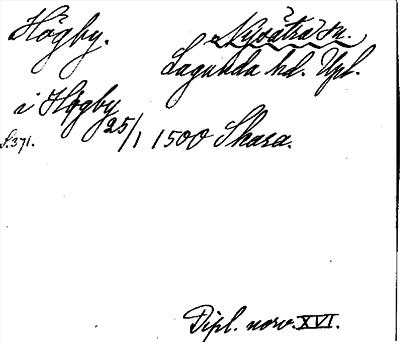 Högby.
Nysätra sn.
Lagunda hd. Upl.
i Högby
25/1 1500 Skara.
S. 371.
Dipl. norv. XVI.